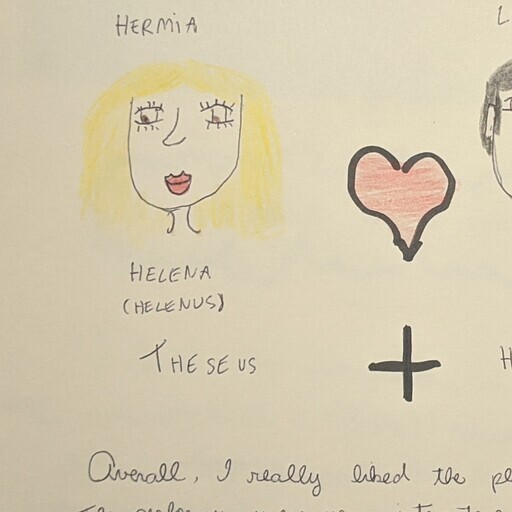 HERMIA L
HELENA
(HELENUS)
THESEUS H
Overall, I really liked the pl